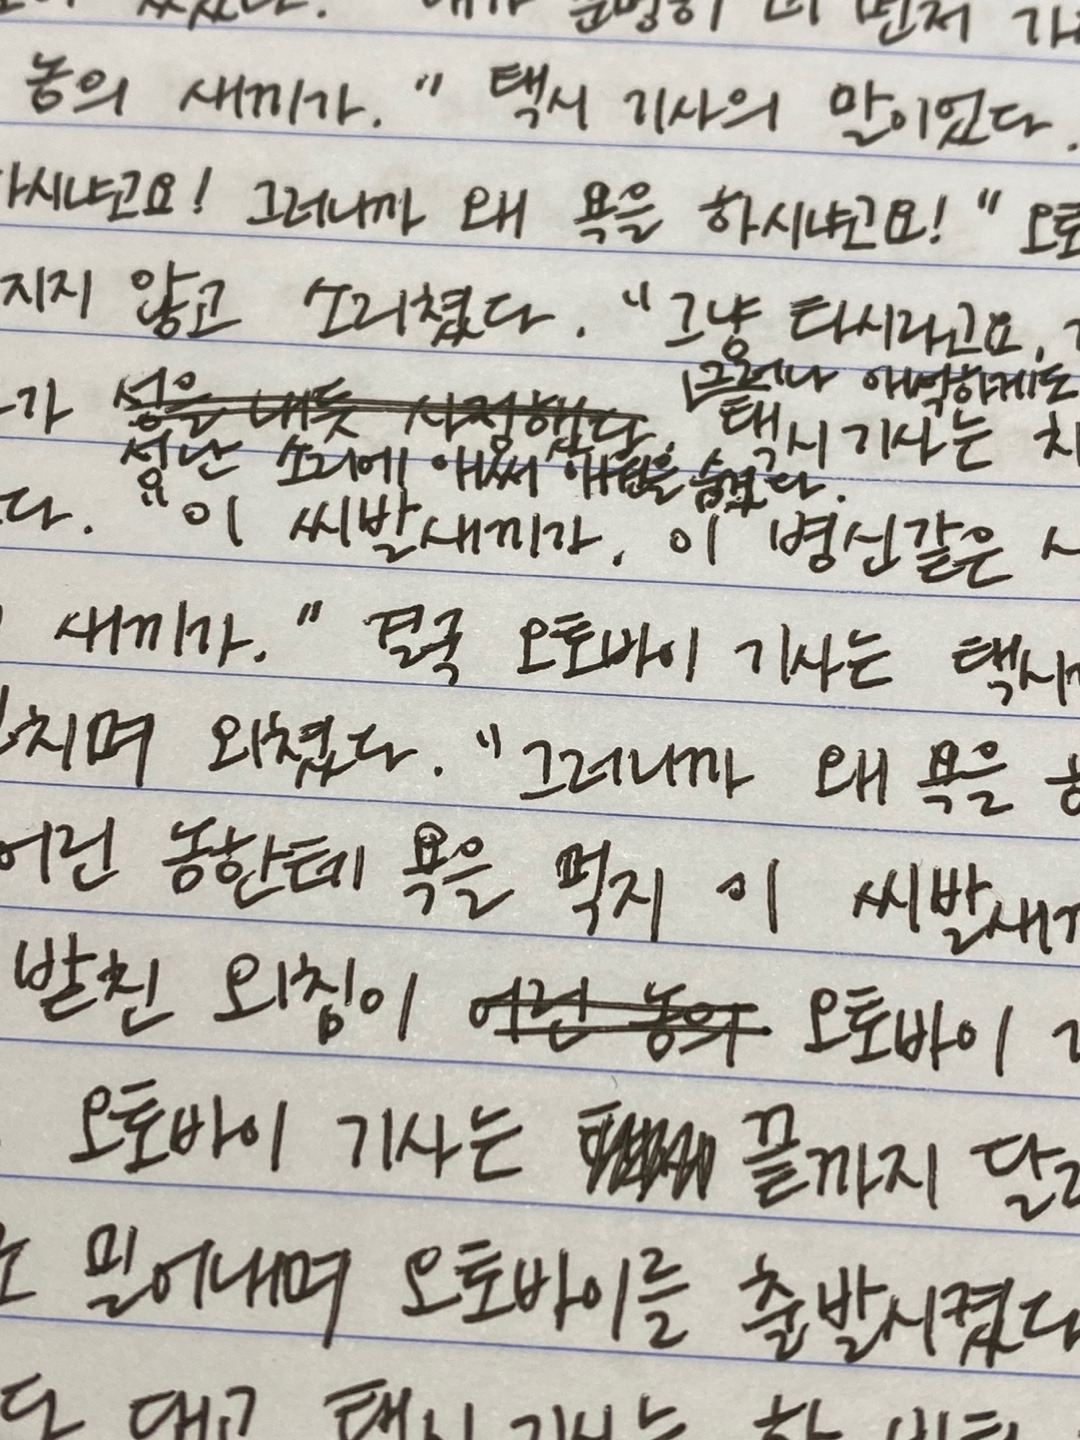 분명히 더 먼저
놈의 새끼가." 택시 기사의 말이었다.
하시냐고요! 그러니까 왜 욕을 하시냐고요!" 오토
지지 않고 소리쳤다. "그냥 타시라고요.
그러나 애석하게도
가 성을 내듯 사정했다. 택시 기사는
성난 소리에 애써 애원을 숨겼다.
다. "이 씨발새끼가. 이 병신같은
새끼가." 결국 오토바이 기사는 택시
치며 외쳤다. "그러니까 왜 욕을
어린 놈한테 욕을 먹지 이 씨발새끼
받친 외침이 어린 놈의 오토바이
오토바이 기사는 끝까지
밀어내며 오토바이를 출발시켰다
대고 택시 기사는 한